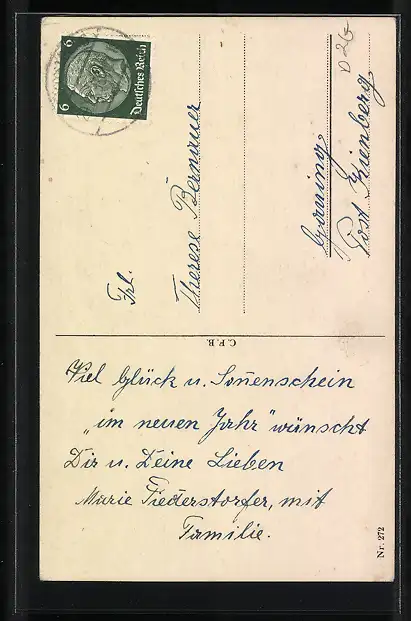 6
6
Deutsches Reich
D2G
Frl.
Therese Bernauer
Post Kienberg
C.F.B.
Viel Glück u. Sonnenschein
„im neuen Jahr" wünscht
Dir u. Deine Lieben
Marie Fiederstorfer, mit
Familie.
Nr. 272